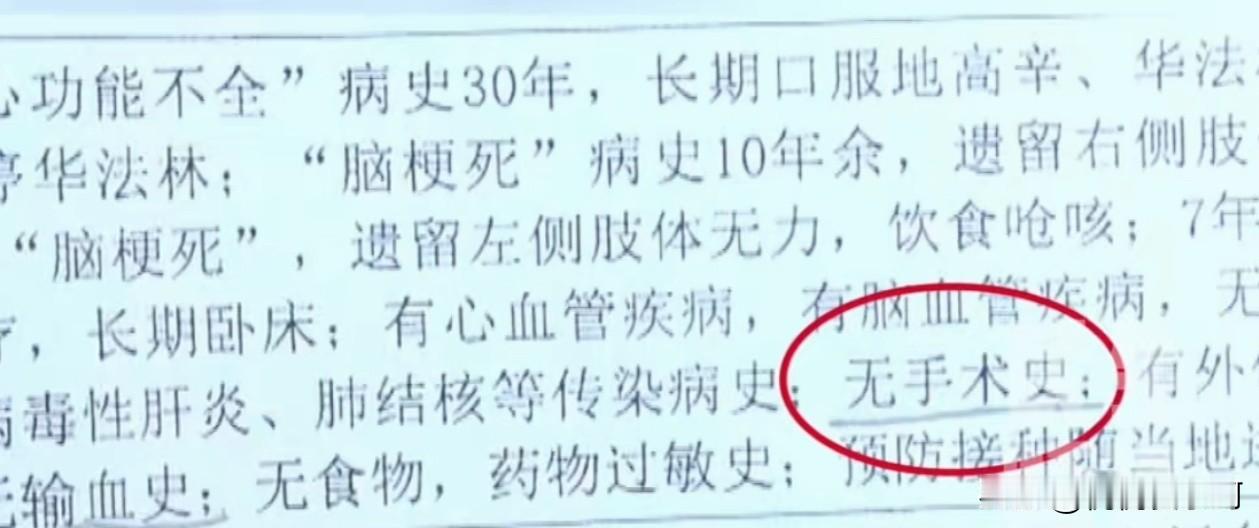 功能不全”病史30年，长期口服地高辛、华法
华法林；“脑梗死”病史10年余，遗留右侧肢
“脑梗死”，遗留左侧肢体无力，饮食呛咳；7年
，长期卧床；有心血管疾病，有脑血管疾病，无
毒性肝炎、肺结核等传染病史；无手术史；有外
输血史；无食物，药物过敏史；预防接种随当地